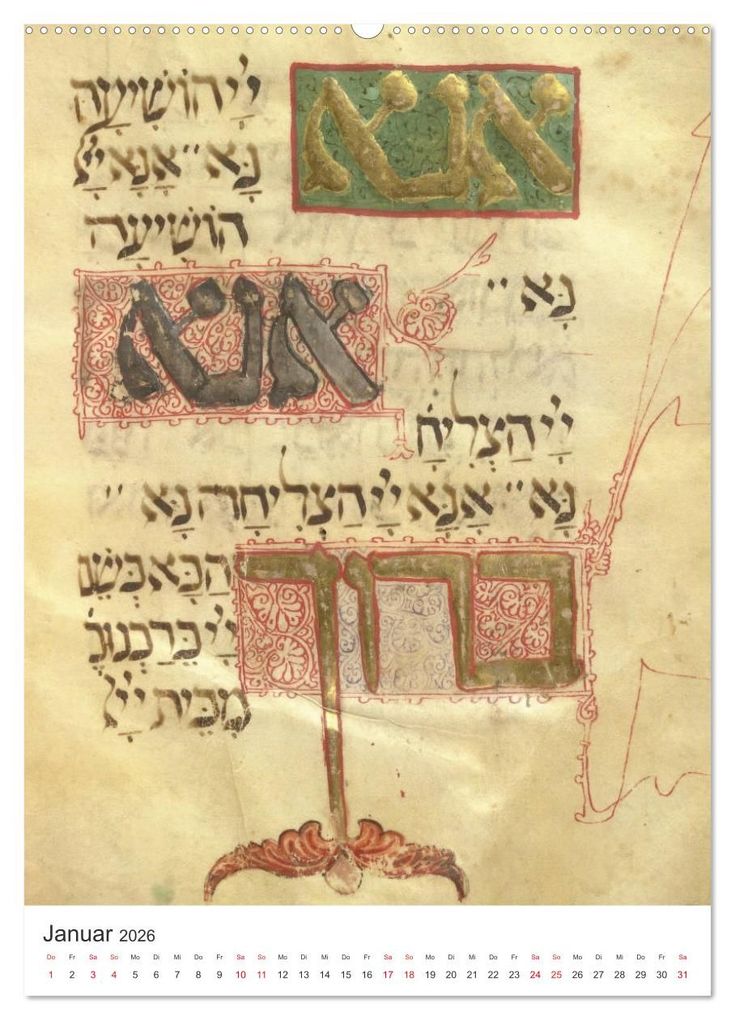 אנא
יְיָ הוֹשִׁיעָה
נָּא ״ אָנָּא יְיָ
הוֹשִׁיעָה
נָּא ״
אנא
יְיָ הַצְלִיחָ
נָּא ״ אָנָּא יְיָ הַצְלִיחָה נָּא ״
ברוך
הַבָּא בְּשֵׁם
יְיָ בֵּרַכְנוּכֶ
מִבֵּית יְיָ
Januar 2026
Do Fr Sa So Mo Di Mi Do Fr Sa So Mo Di Mi Do Fr Sa So Mo Di Mi Do Fr Sa So Mo Di Mi Do Fr Sa
1 2 3 4 5 6 7 8 9 10 11 12 13 14 15 16 17 18 19 20 21 22 23 24 25 26 27 28 29 30 31